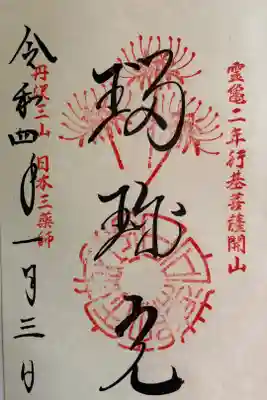 靈亀二年行基菩薩開山
瑠璃光
丹沢三山 日本三薬師
令和四年一月三日